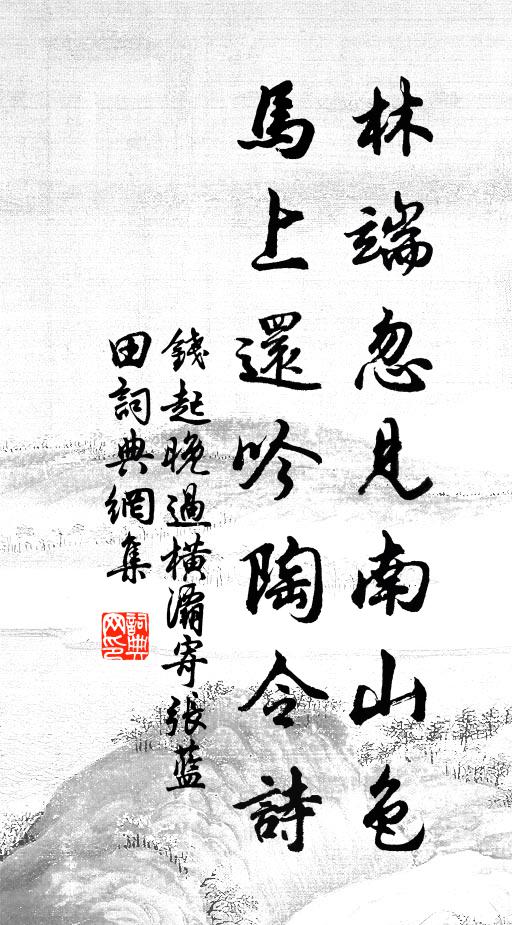 林端忽見南山色
馬上還吟陶令詩
錢起晚過橫灞寄張藍
田詞典網集
詞典
网印